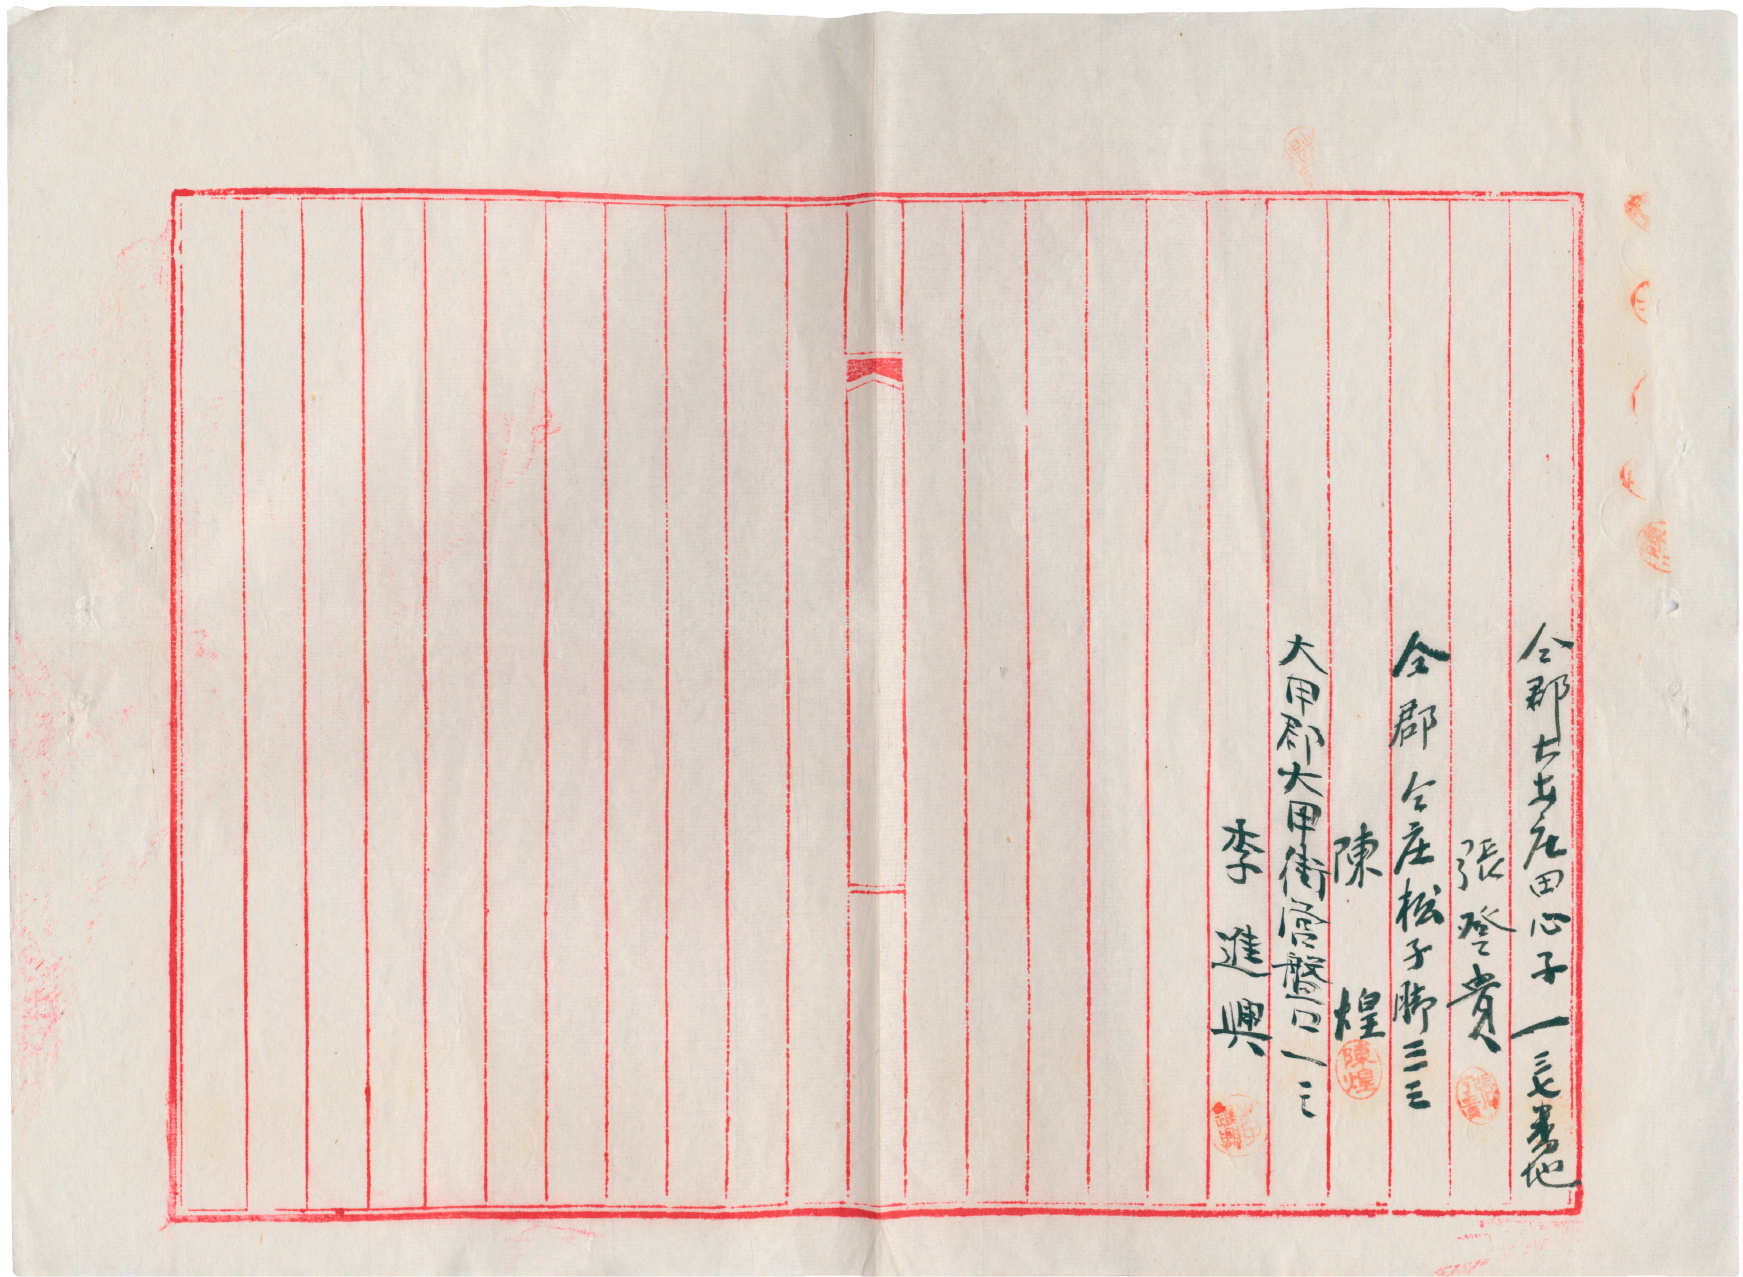 仝郡大安庄田心子一三七番地
張登貴
仝郡仝庄松子脚三三
陳煌
陳煌
大甲郡大甲街营盤口一三
李進興